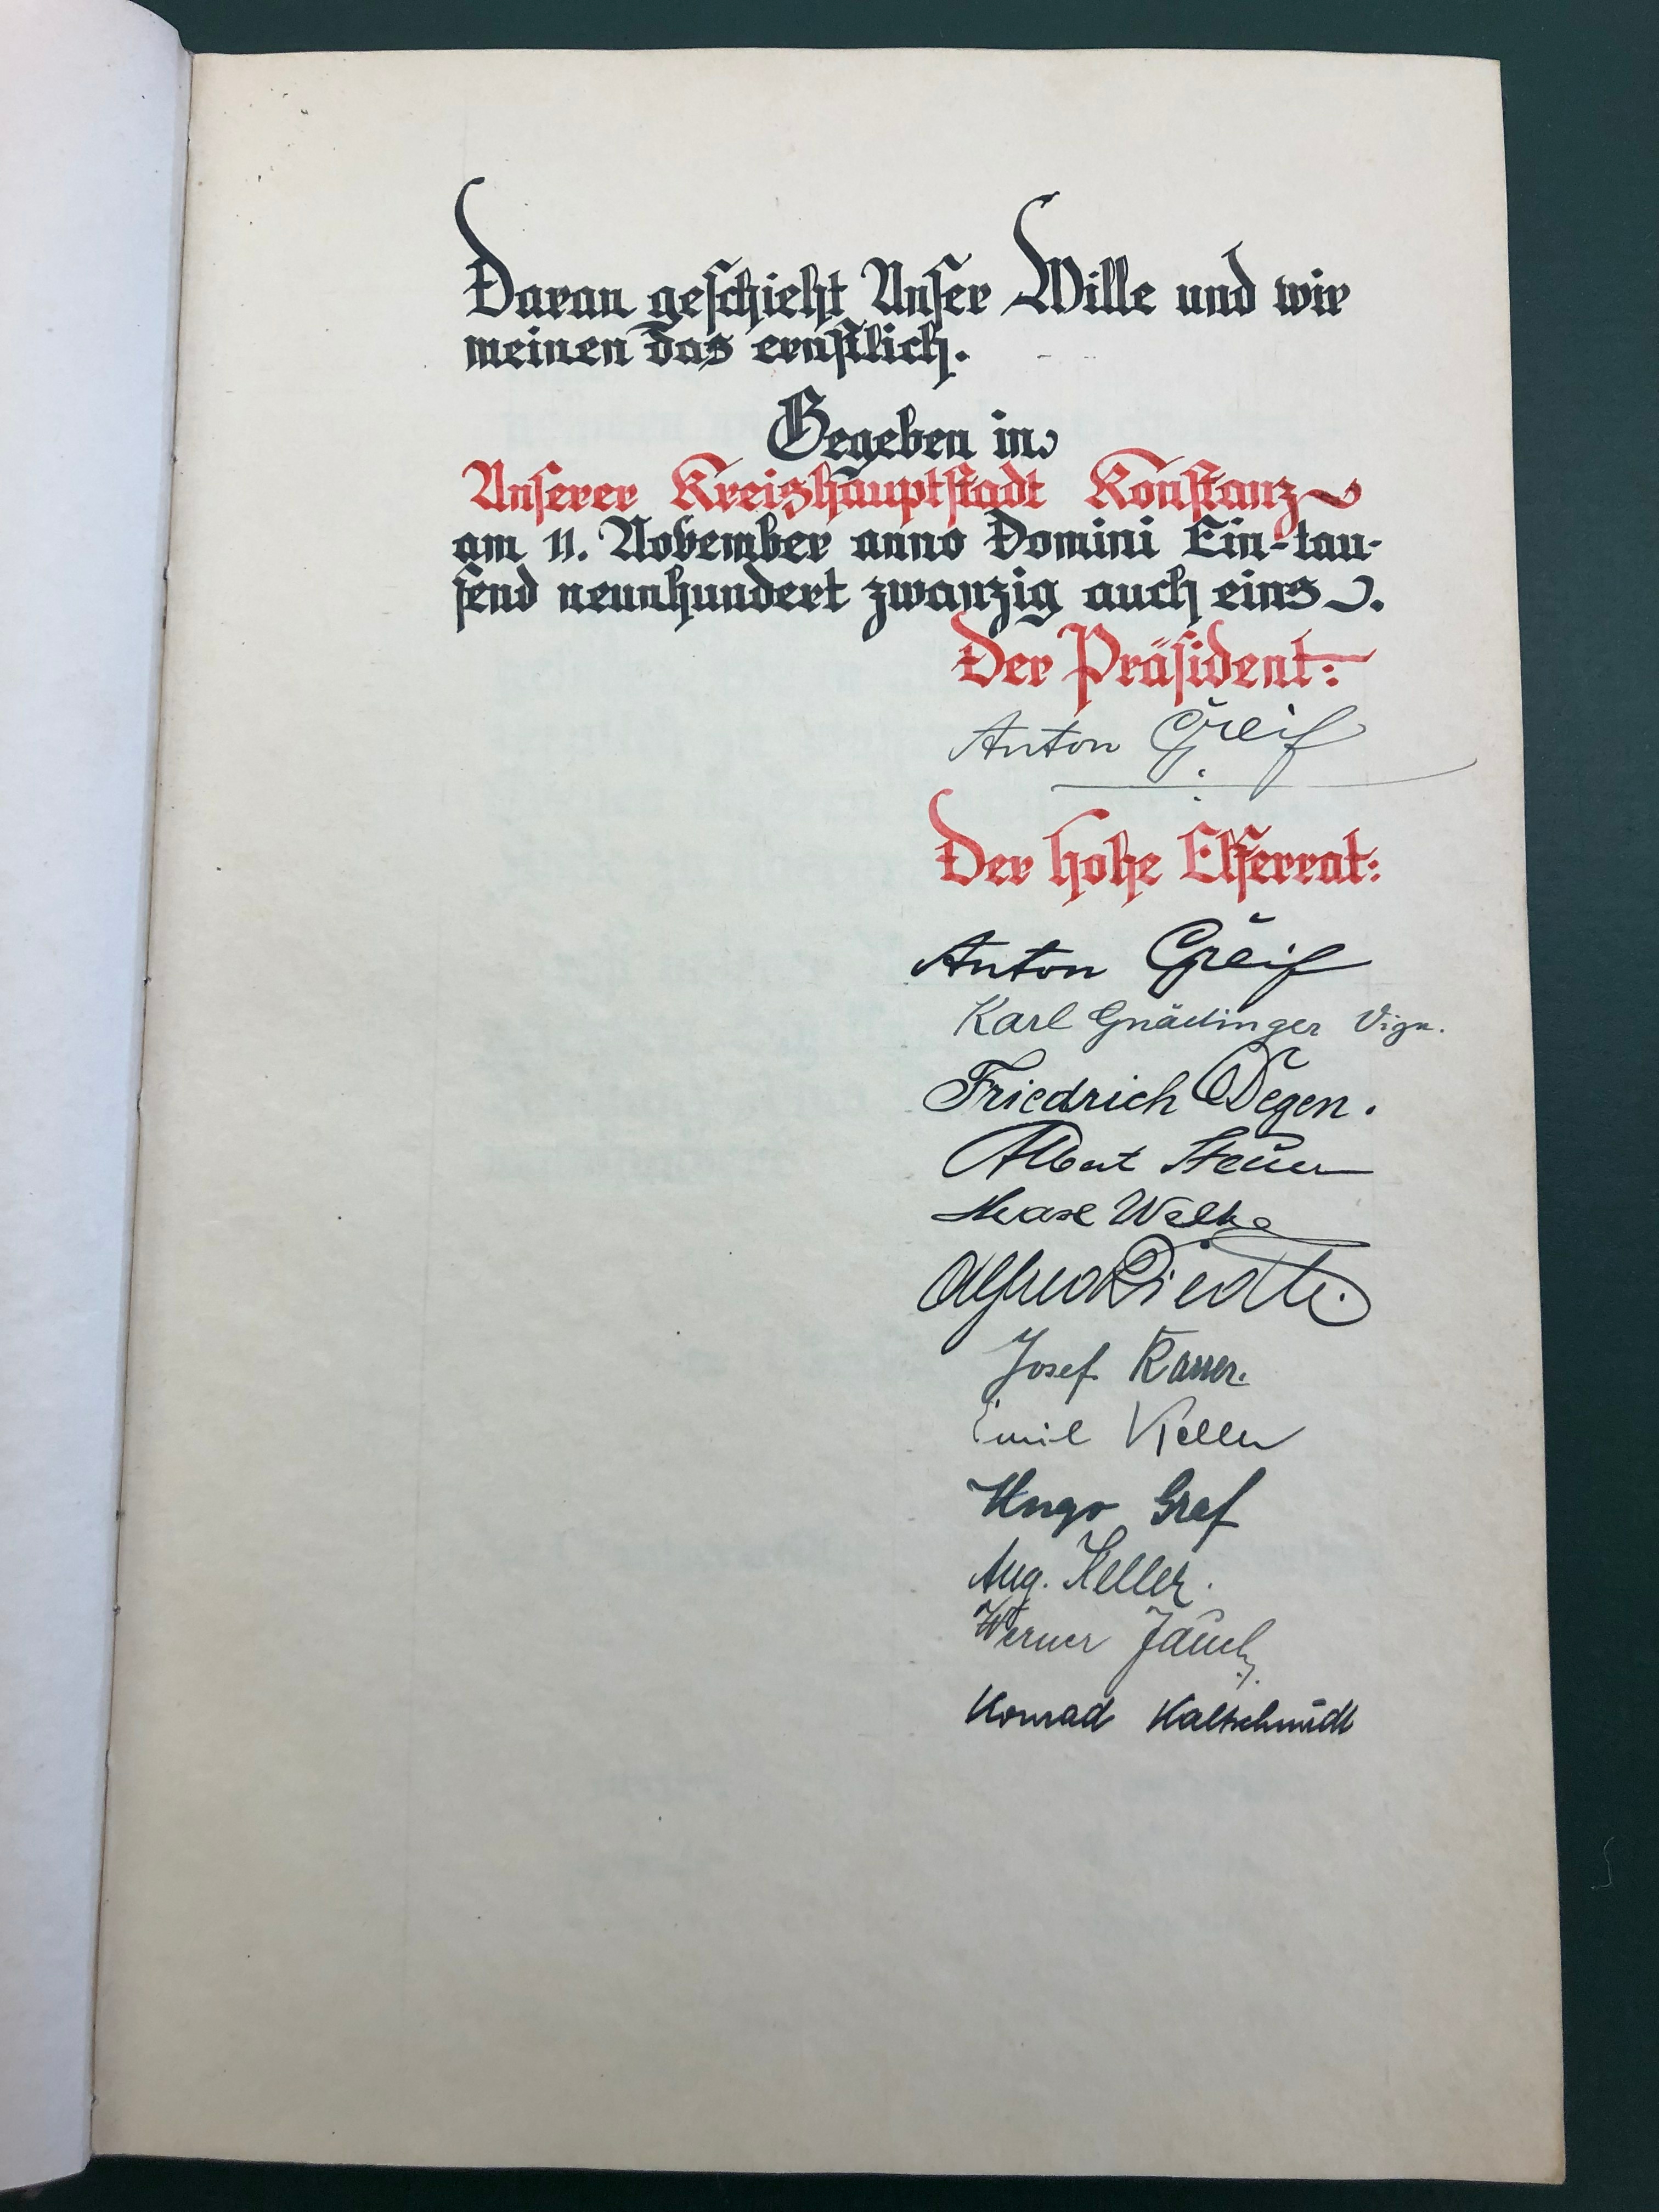 Daran geschieht Unser Wille und wir
meinen das ernstlich.
Gegeben in
Unserer Kreishauptstadt Konstanz
am 11. November anno Domini Ein-tau-
send neunhundert zwanzig auch eins.
Der Präsident:
Anton Greif
Der hohe Elferrat:
Anton Greif
Karl Gnädinger
Friedrich Degen.
Albert Steuer
Welke
Alfred
Josef Karrer.
Emil Keller
Hugo Graf
Aug. Keller.
Werner Jauch
Konrad Kaltschmidt